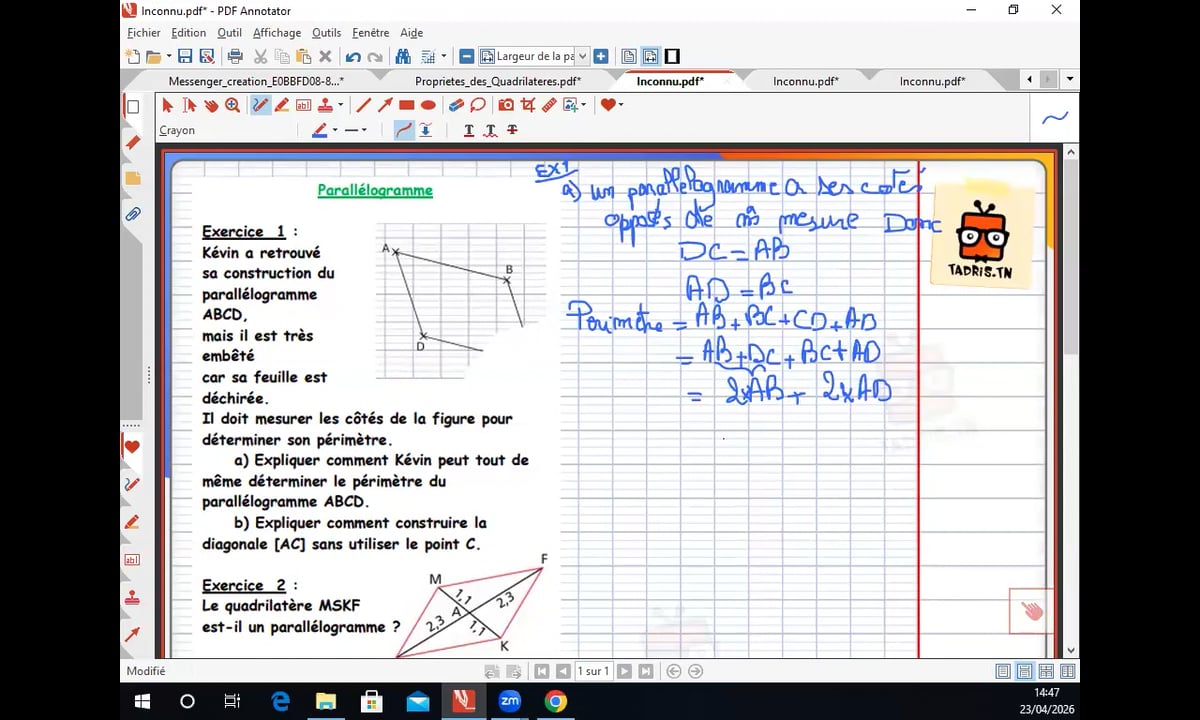 Inconnu.pdf* - PDF Annotator
Fichier Edition Outil Affichage Outils Fenêtre Aide
Largeur de la pa
Messenger_creation_E0BBFD08-8...* Proprietes_des_Quadrilateres.pdf* Inconnu.pdf* Inconnu.pdf* Inconnu.pdf*
Crayon
Parallélogramme
Exercice 1 :
Kévin a retrouvé
sa construction du
parallélogramme
ABCD,
mais il est très
embêté
car sa feuille est
déchirée.
Il doit mesurer les côtés de la figure pour
déterminer son périmètre.
a) Expliquer comment Kévin peut tout de
même déterminer le périmètre du
parallélogramme ABCD.
b) Expliquer comment construire la
diagonale [AC] sans utiliser le point C.
A
B
D
Exercice 2 :
Le quadrilatère MSKF
est-il un parallélogramme ?
M
F
1,1
2,3
A
2,3
1,1
K
EX1
a) un parallélogramme a ses cotés
opposés de m̂ mesure Donc
DC = AB
AD = BC
Périmètre = AB + BC + CD + AD
= AB + DC + BC + AD
= 2×AB + 2×AD
TADRIS.TN
TADRIS.TN
1 sur 1
Modifié
14:47
23/04/2026
zm